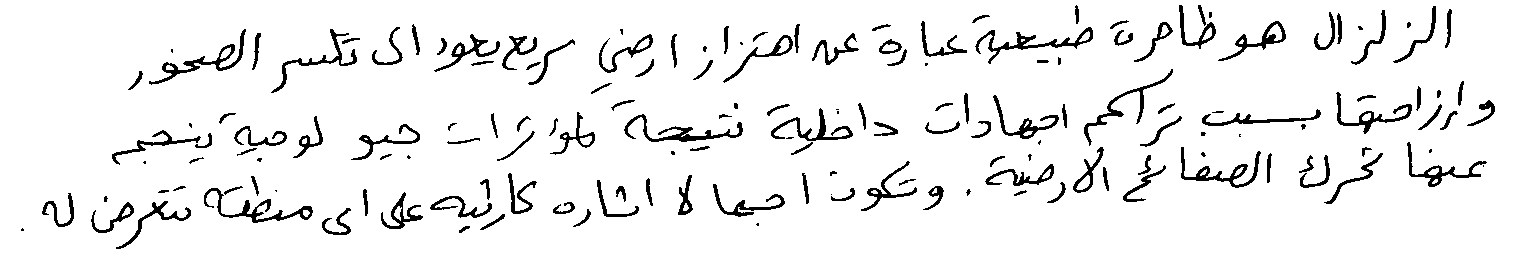 الزلزال هو ظاهرة طبيعية عبارة عن اهتزاز ارضي سريع يعود الى تكسر الصخور
وازاحتها بسبب تراكم اجهادات داخلية نتيجة لمؤثرات جيو لوجية ينجم
عنها تحرك الصفائح الارضية. وتكون اجمالا اثاره كارثيه على اى منطقه تتعرض له.